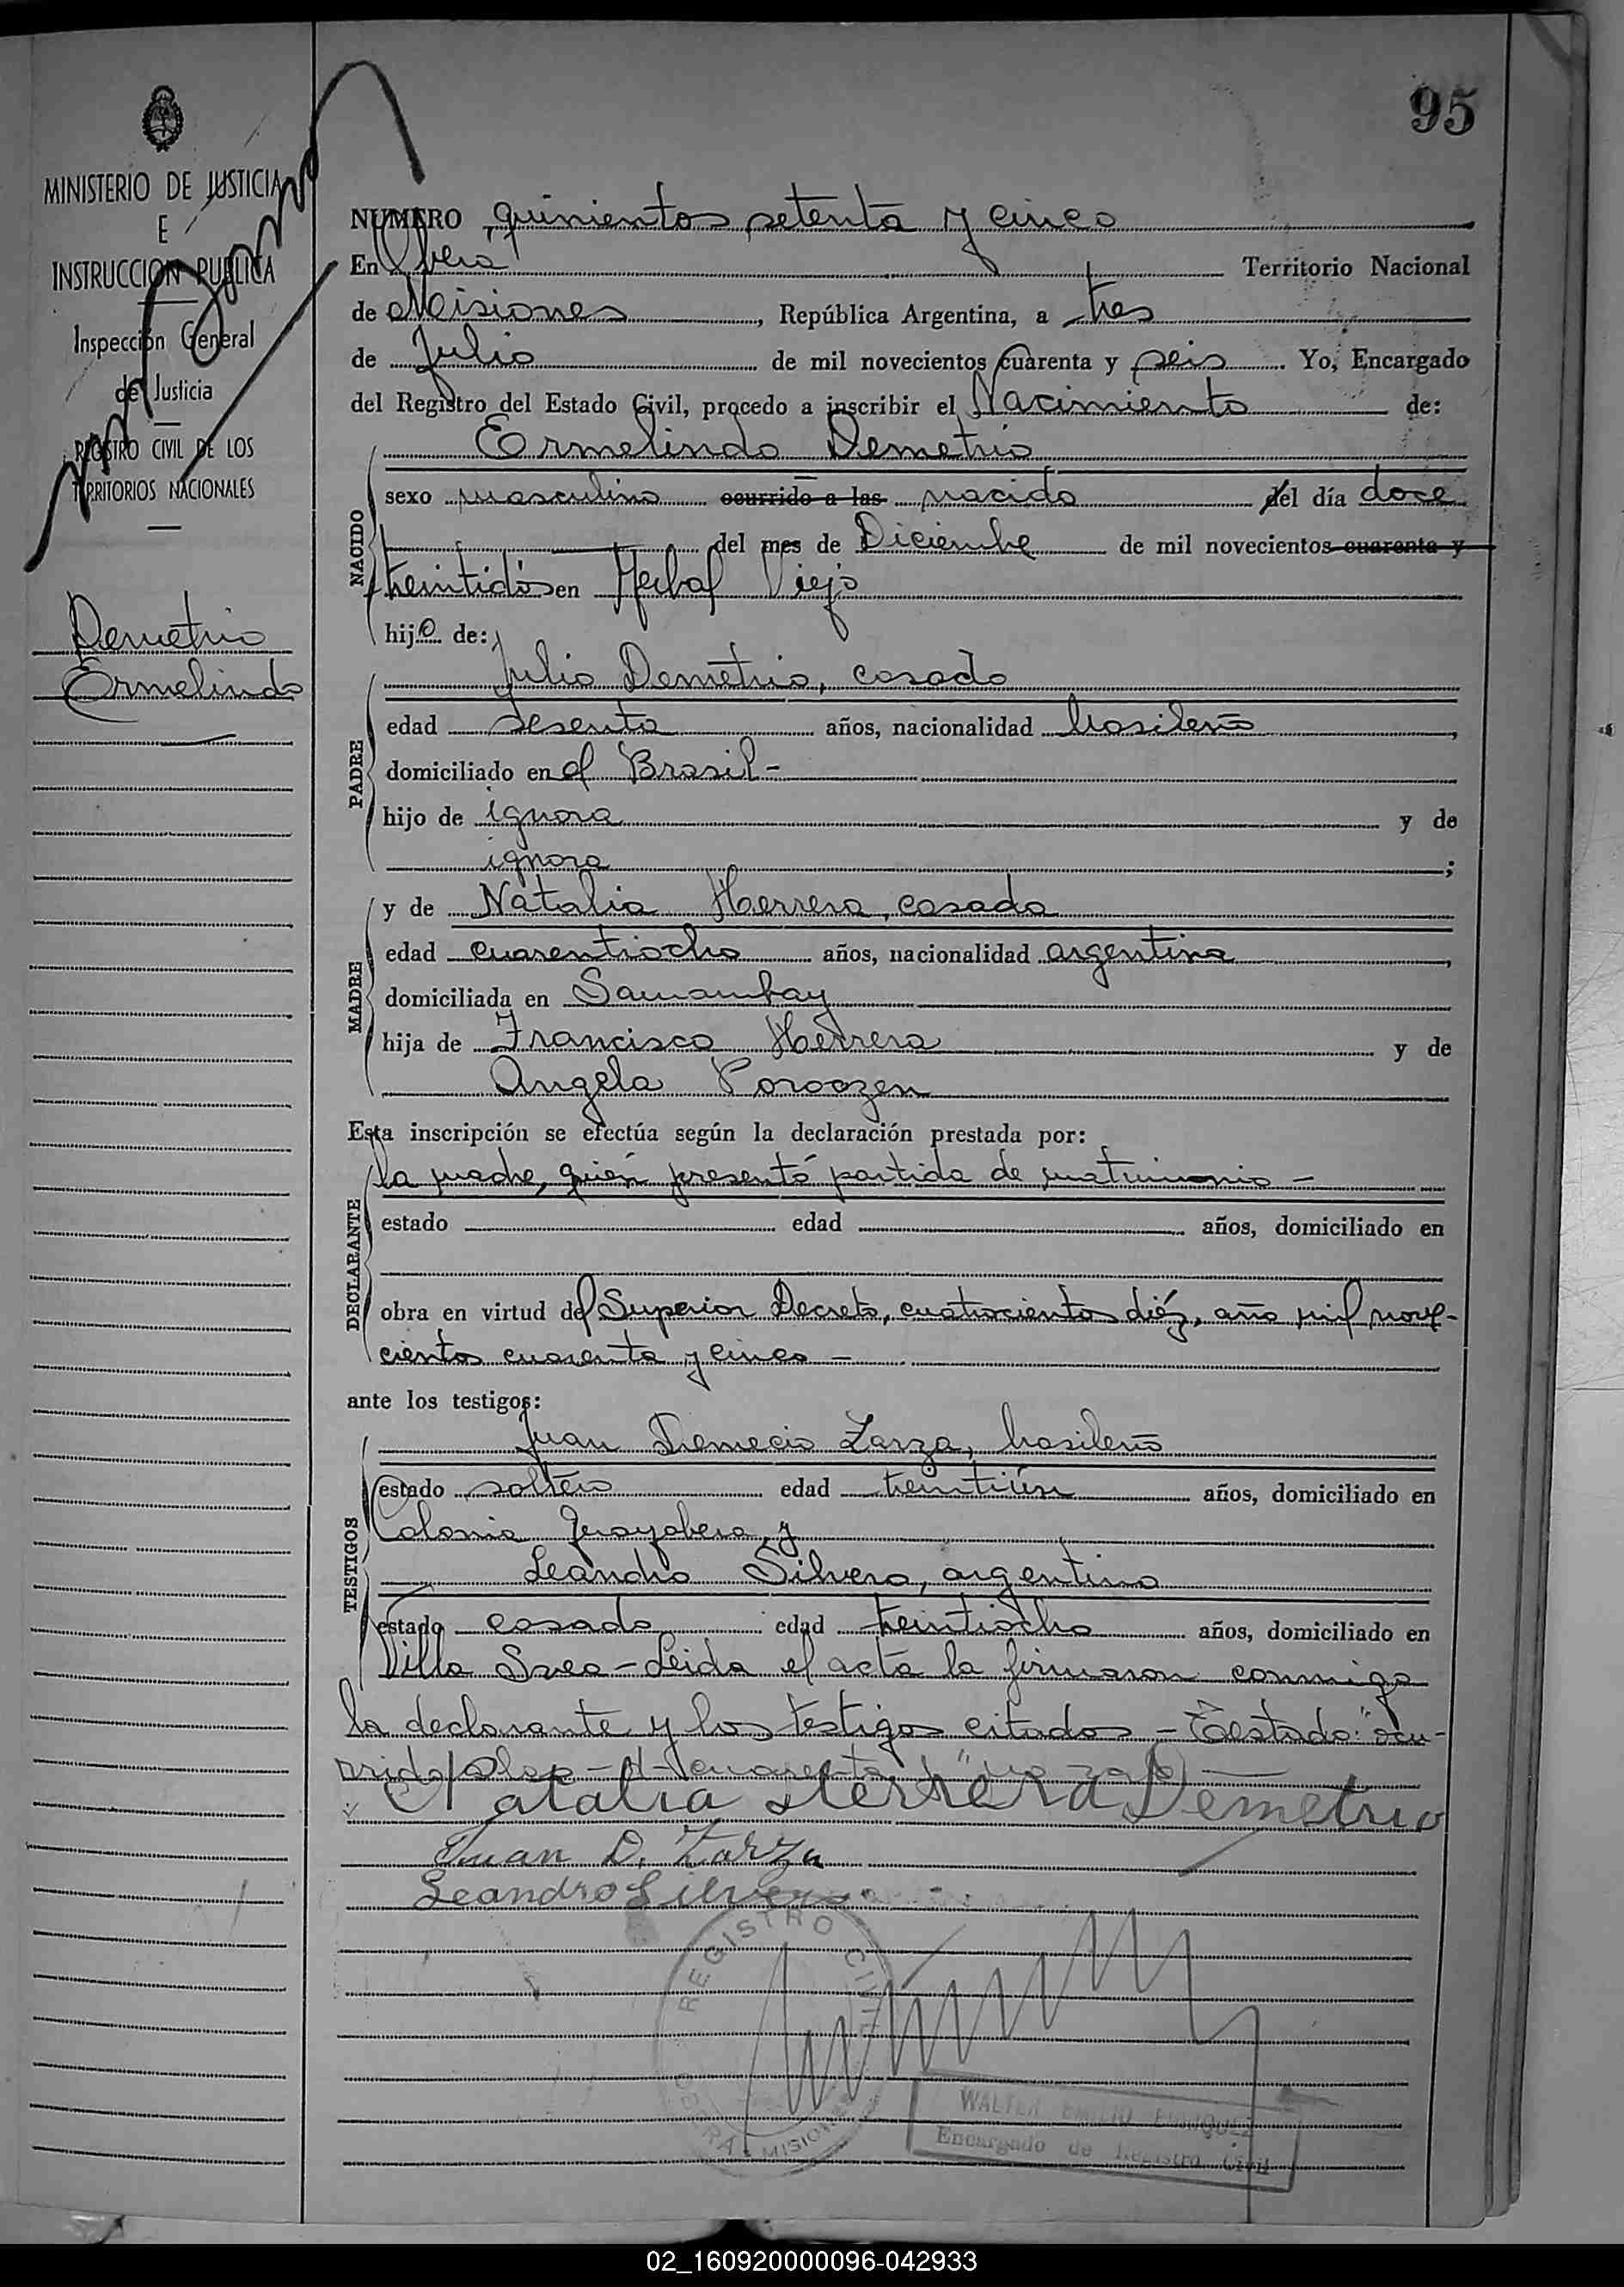 95
MINISTERIO DE JUSTICIA
E
INSTRUCCION PUBLICA
Inspección General
de Justicia
REGISTRO CIVIL DE LOS
TERRITORIOS NACIONALES
Demetrio
Ermelindo
NUMERO quinientos setenta y cinco
En Oberá Territorio Nacional
de Misiones, República Argentina, a tres
de Julio de mil novecientos cuarenta y seis. Yo, Encargado
del Registro del Estado Civil, procedo a inscribir el Nacimiento de:
Ermelindo Demetrio
NACIDO
sexo masculino ocurrido a las nacido del día doce
del mes de Diciembre de mil novecientos cuarenta y
treintidós en Yerbal Viejo
hijo de:
PADRE
Julio Demetrio, casado
edad sesenta años, nacionalidad brasileño,
domiciliado en el Brasil-
hijo de ignora y de
ignora;
MADRE
y de Natalia Herrera, casada
edad cuarentiocho años, nacionalidad argentina,
domiciliada en Samambay
hija de Francisco Herrera y de
Angela
Esta inscripción se efectúa según la declaración prestada por:
DECLARANTE
la madre, quién presentó partida de matrimonio -
estado edad años, domiciliado en
obra en virtud del Superior Decreto, cuatrocientos diéz, año mil nove-
cientos cuarenta y cinco -
ante los testigos:
TESTIGOS
Juan Demecio Zarza, brasileño
estado soltero edad treintiún años, domiciliado en
Colonia Guayabera, y
Leandro Silvero, argentino
estado casado edad treintiocho años, domiciliado en
Villa Svea - Leida el acta la firmaron conmigo
la declarante y los testigos citados - Testado: "ocu-
rrido a las - d - cuarenta y" no vale -
Natalia Herrera Demetrio
Juan D. Zarza
Leandro Silvero
REGISTRO CIVIL
OBERA - MISIONES
WALTER EMILIO
Encargado de Registro Civil
02_160920000096-042933